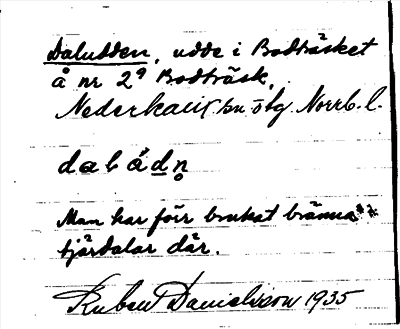 Daludden, udde i Bodträsket
å nr 2⁹ Bodträsk,
Nederkalix sn ö bg Norrb. l.
dalådn
Man har förr brukat bränna
tjärdalar där.
Ruben Danielsson 1935